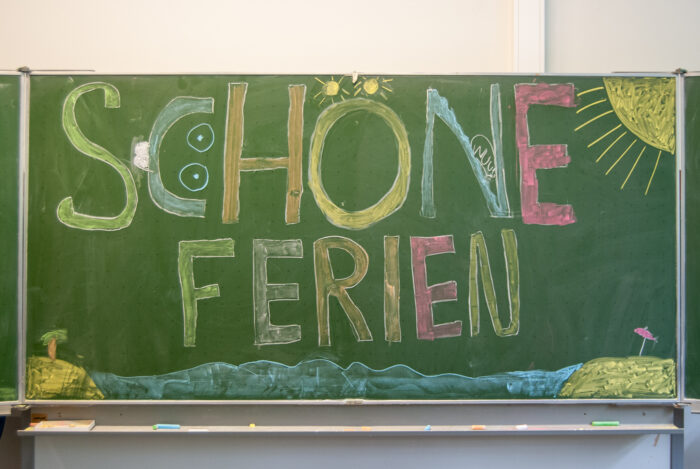 SCHÖNE
FERIEN